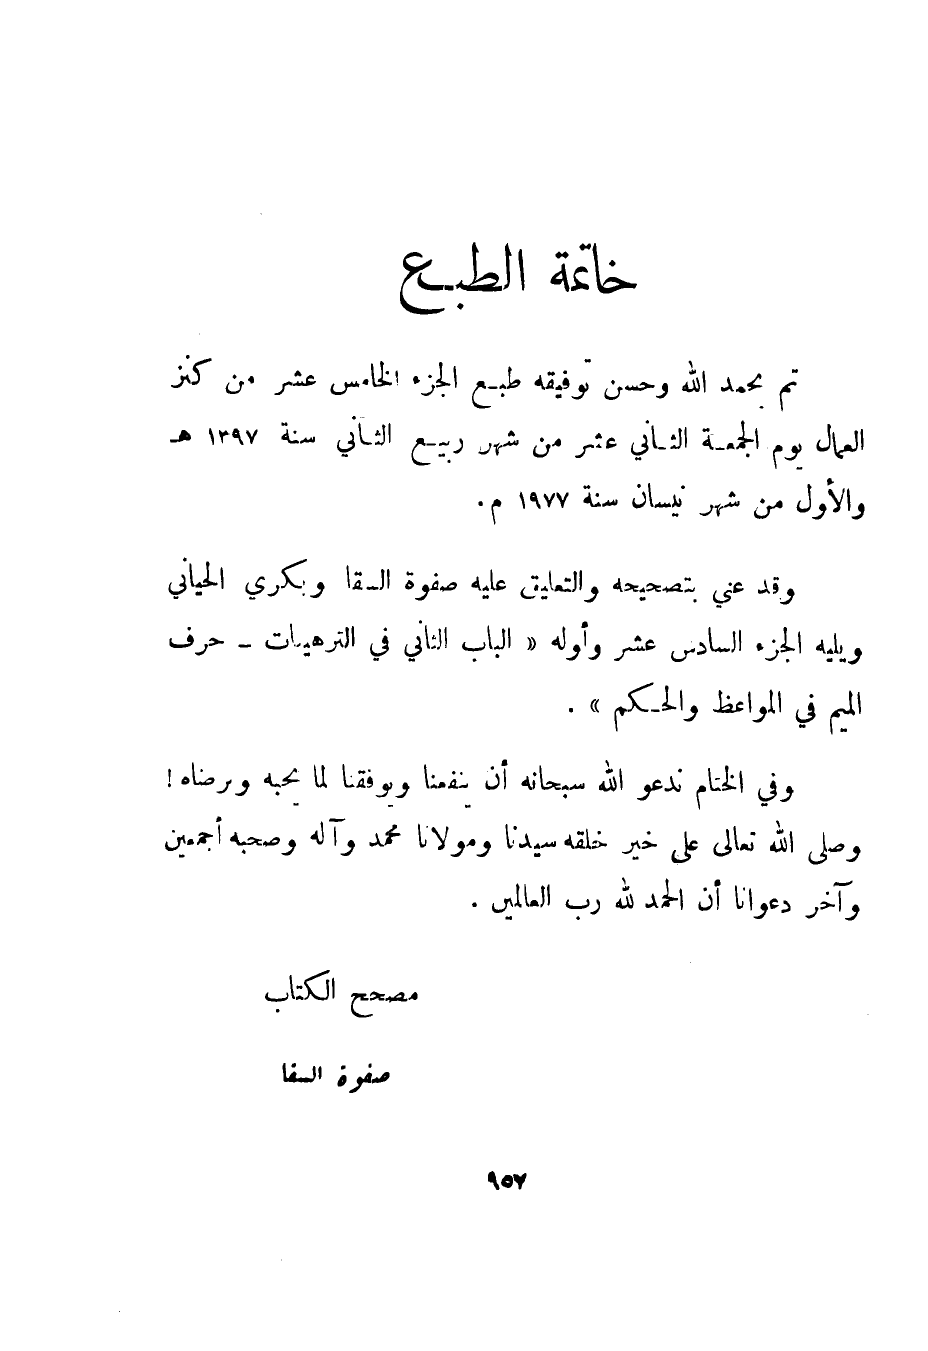 خاتمة الطبع
تم بحمد الله وحسن توفيقه طبع الجزء الخامس عشر من كنز
العمال يوم الجمعة الثاني عشر من شهر ربيع الثاني سنة ١٣٩٧ هـ
والأول من شهر نيسان سنة ١٩٧٧ م .
وقد عني بتصحيحه والتعليق عليه صفوة السقا وبكري الحياني
ويليه الجزء السادس عشر وأوله « الباب الثاني في الترهيبات - حرف
الميم في المواعظ والحكم » .
وفي الختام ندعو الله سبحانه أن ينفعنا ويوفقنا لما يحبه ويرضاه !
وصلى الله تعالى على خير خلقه سيدنا ومولانا محمد وآله وصحبه أجمعين
وآخر دعوانا أن الحمد لله رب العالمين .
مصحح الكتاب
صفوة السقا
٩٥٧